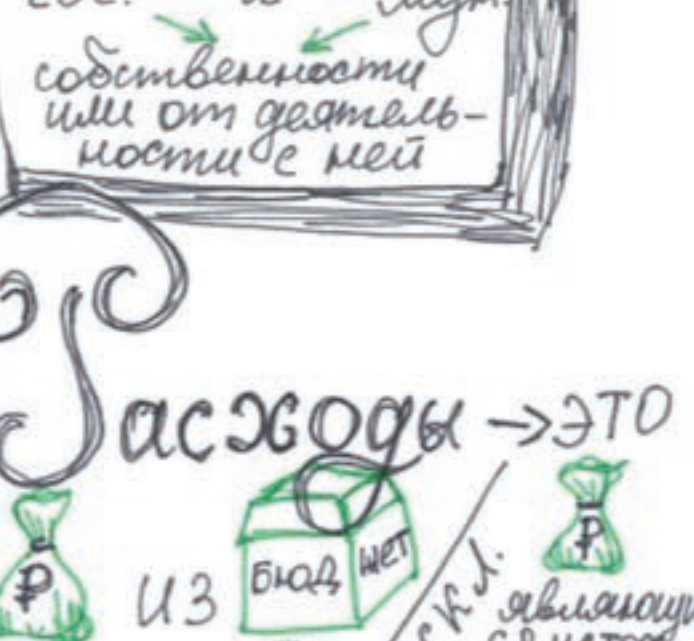 собственности
или от деятель-
ности с ней
Расходы → ЭТО
₽ ИЗ БЮДЖЕТ ₽